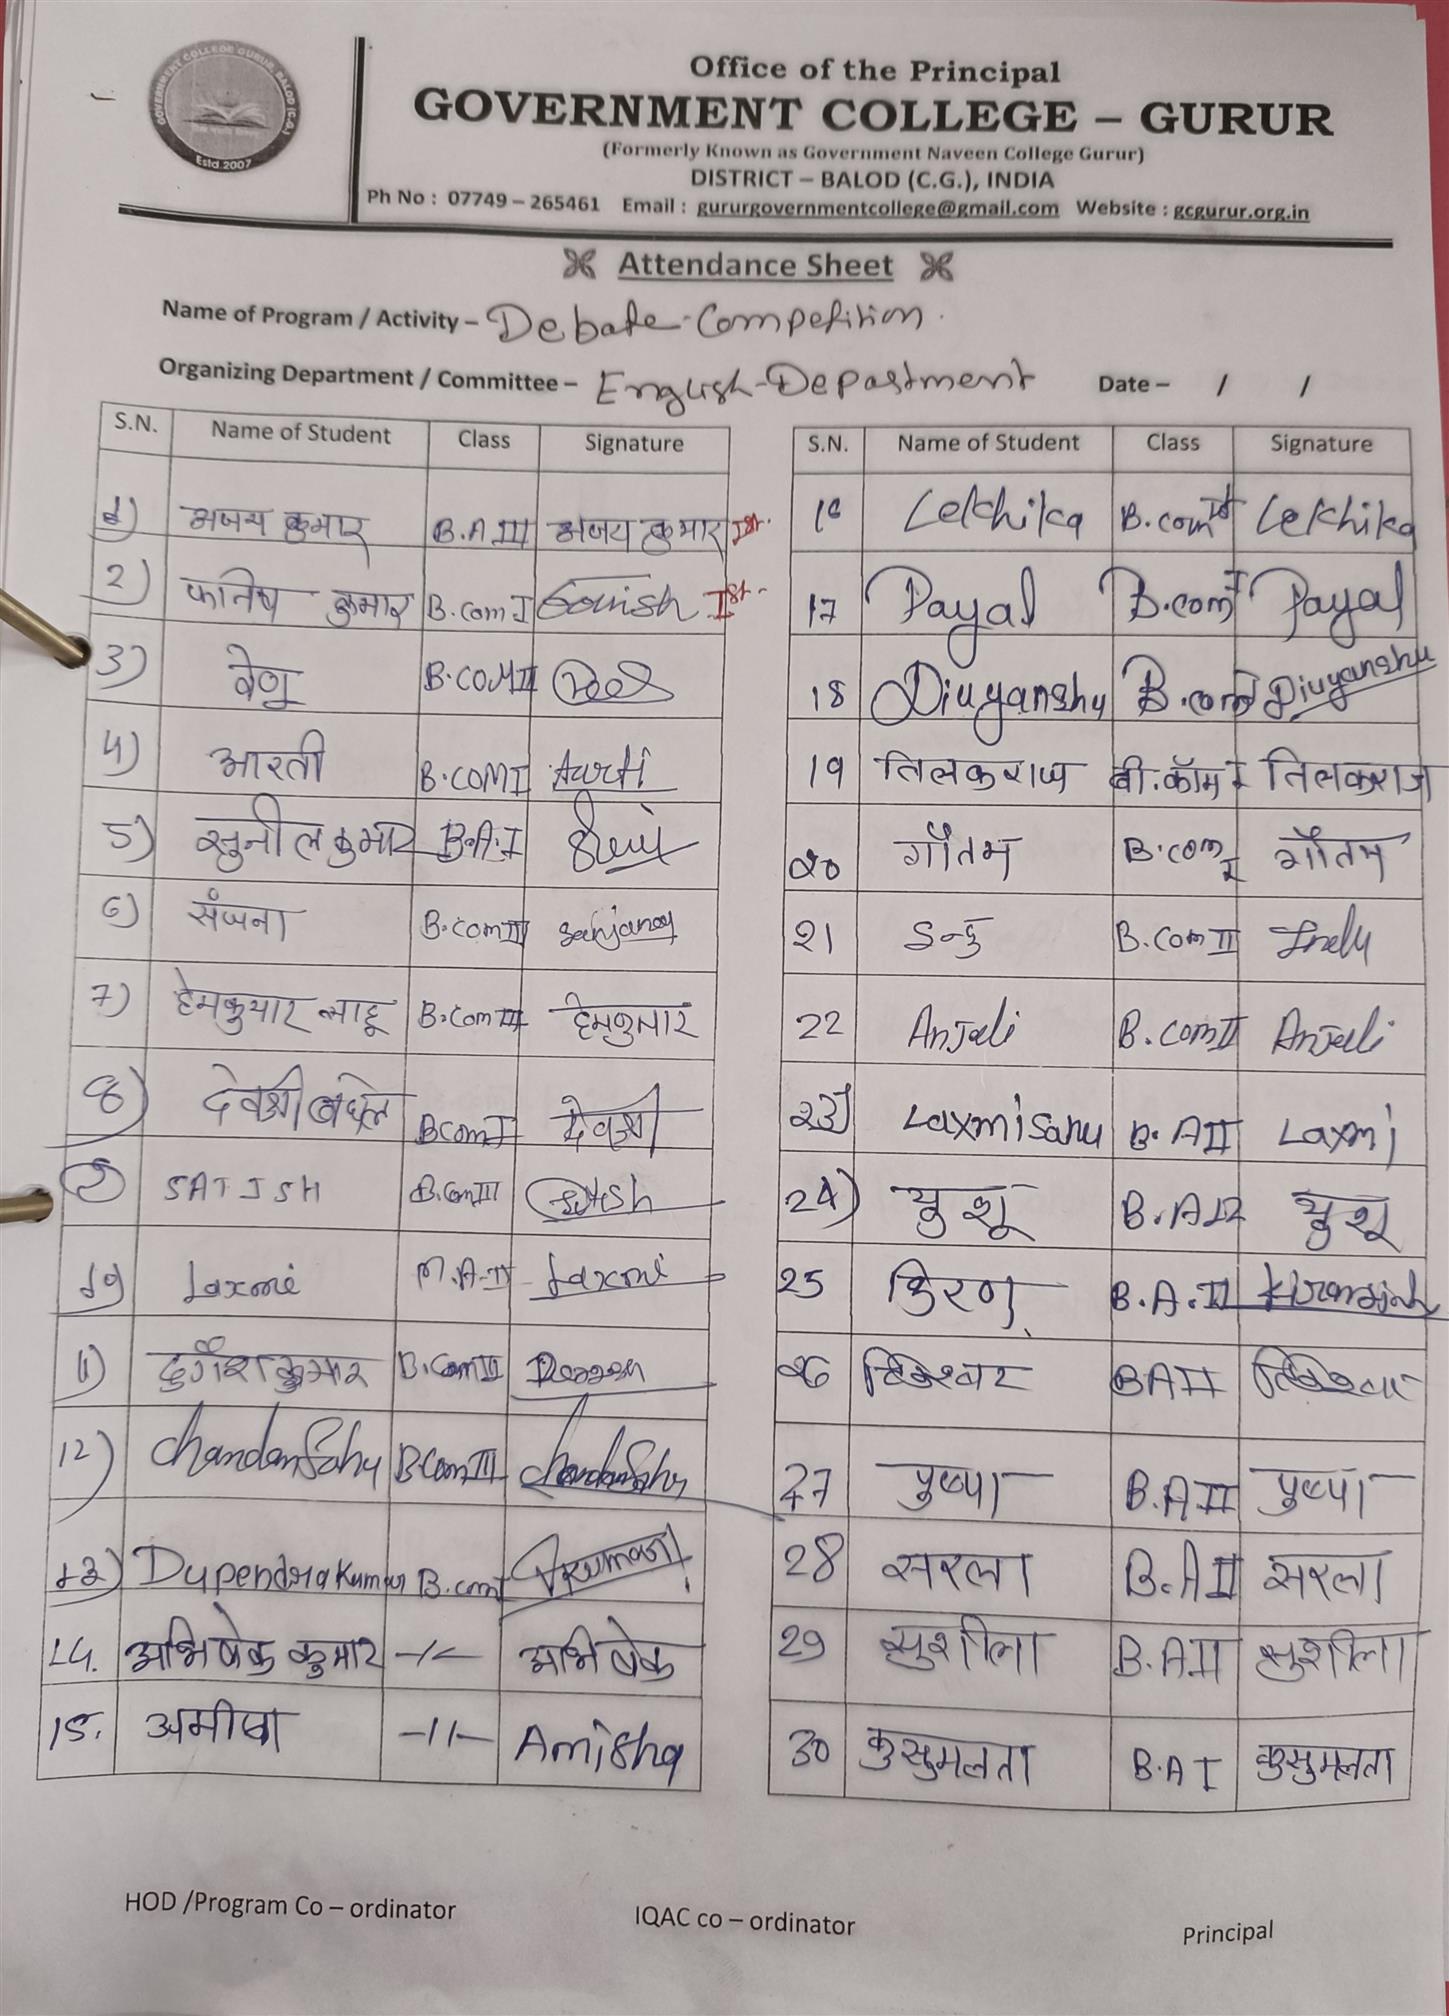 GOVERNMENT COLLEGE GURUR, BALOD (C.G.)
Estd.2007
Office of the Principal
GOVERNMENT COLLEGE – GURUR
(Formerly Known as Government Naveen College Gurur)
DISTRICT – BALOD (C.G.), INDIA
Ph No : 07749 – 265461 Email : gururgovernmentcollege@gmail.com Website : gcgurur.org.in
Attendance Sheet
Name of Program / Activity – Debate Competition.
Organizing Department / Committee – English Department Date – / /
S.N. Name of Student Class Signature
1) अजय कुमार B.A III अजय कुमार Ist.
2) फानेष कुमार B.com I Ist.
3) वेणु B.COM II
4) आरती B.COM I Aarti
5) सुनील कुमार B.A.I
6) संजना B.com III Sanjana
7) हेमकुमार साहू B.com III हेमकुमार
8) देवश्री बघेल B.com I देवश्री
9) SATISH B.Com III Satish
10) Laxmi M.A-II Laxmi
11) दुर्गेश कुमार B.Com III
12) Chandan Sahu B.Com III Chandan Sahu
13) Dupendra Kumar B.com I
14. अभिषेक कुमार -//- अभिषेक
15. अमीषा -//- Amisha
S.N. Name of Student Class Signature
16 Lekhika B.com Ist Lekhika
17 Payal B.com I Payal
18 Divyanshu B.com I Divyanshu
19 तिलकराज बी.कॉम I तिलकराज
20 गौतम B.com I गौतम
21 इन्दु B.Com II Indu
22 Anjali B.com II Anjali
23) Laxmi Sahu B.A II Laxmi
24) युशू B.A II युशू
25 किरण B.A.II
26 टिकेश्वर BA II टिकेश्वर
27 पुष्पा B.A II पुष्पा
28 सरला B.A II सरला
29 सुशीला B.A II सुशीला
30 कुसुमलता B.A I कुसुमलता
HOD /Program Co – ordinator IQAC co – ordinator Principal